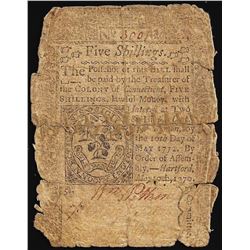 No 800
Five Shillings.
THE Possessor of this BILL shall
be paid by the Treasurer of
the COLONY of Connecticut, FIVE
SHILLINGS, Lawful Money, with
Interest at Two
by the 10th Day of
MAY 1772. By
Order of Assem-
bly.—Hartford,
May 10th, 1770.
5s